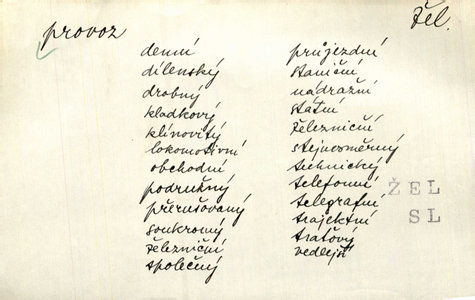 provoz
žel.
denní
dílenský
drobný
kladkový
klínovitý
lokomotivní
obchodní
podružný
přerušovaný
soukromý
železniční
společný
průjezdní
staniční
nádražní
státní
železniční
stejnosměrný
technický
telefonní
telegrafní
trajektní
traťový
vedlejší
ŽEL
SL